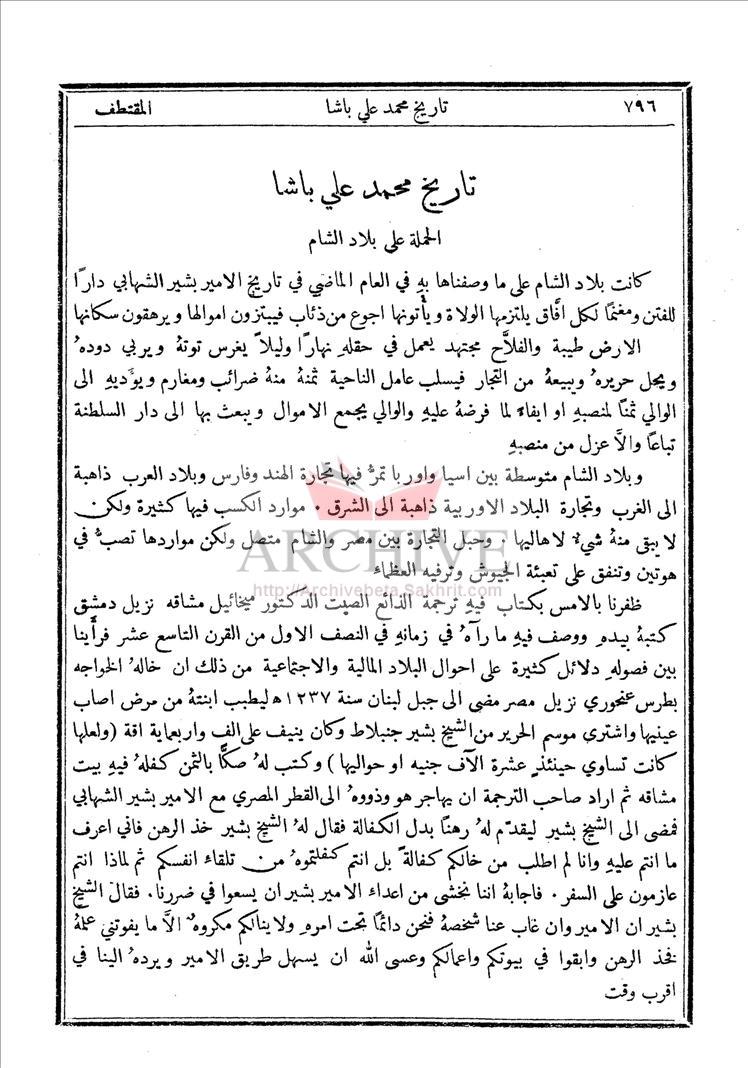 ٧٩٦ تاريخ محمد علي باشا المقتطف
تاريخ محمد علي باشا
الحملة على بلاد الشام
كانت بلاد الشام على ما وصفناها بهِ في العام الماضي في تاريخ الامير بشير الشهابي دارًا
للفتن ومغنمًا لكل افَّاق يلتزمها الولاة ويأْتونها اجوع من ذئاب فيبتزون اموالها ويرهقون سكانها
الارض طيبة والفلاَّح مجتهد يعمل في حقلهِ نهارًا وليلاً يغرس توتهُ ويربي دودهُ
ويحل حريرهُ ويبيعهُ من التجار فيسلب عامل الناحية ثمنهُ منهُ ضرائب ومغارم ويؤديهِ الى
الوالي ثمنًا لمنصبهِ او ايفاءً لما فرضهُ عليهِ والوالي يجمع الاموال ويبعث بها الى دار السلطنة
تباعًا والاَّ عزل من منصبهِ
وبلاد الشام متوسطة بين اسيا واوربا تمرُّ فيها تجارة الهند وفارس وبلاد العرب ذاهبة
الى الغرب وتجارة البلاد الاوربية ذاهبة الى الشرق . موارد الكسب فيها كثيرة ولكن
لا يبقى منهُ شيءٌ لاهاليها . وحبل التجارة بين مصر والشام متصل ولكن مواردها تصبُّ في
هوتين وتنفق على تعبئة الجيوش وترفيه العظماء
ARCHIVE
http://Archivebeta.Sakhrit.com
ظفرنا بالامس بكتاب فيهِ ترجمة الذائع الصيت الدكتور ميخائيل مشاقه نزيل دمشق
كتبهُ بيدهِ ووصف فيهِ ما رآهُ في زمانهِ في النصف الاول من القرن التاسع عشر فرأَينا
بين فصولهِ دلائل كثيرة على احوال البلاد المالية والاجتماعية من ذلك ان خالهُ الخواجه
بطرس عنحوري نزيل مصر مضى الى جبل لبنان سنة ١٢٣٧ ه ليطبب ابنتهُ من مرض اصاب
عينيها واشترى موسم الحرير من الشيخ بشير جنبلاط وكان ينيف على الف واربعماية اقة (ولعلها
كانت تساوي حينئذٍ عشرة الآف جنيه او حواليها) وكتب لهُ صكًّا بالثمن كفلهُ فيهِ بيت
مشاقه ثم اراد صاحب الترجمة ان يهاجر هو وذووهُ الى القطر المصري مع الامير بشير الشهابي
فمضى الى الشيخ بشير ليقدّم لهُ رهنًا بدل الكفالة فقال لهُ الشيخ بشير خذ الرهن فاني اعرف
ما انتم عليهِ وانا لم اطلب من خالكم كفالةً بل انتم كفلتموهُ من تلقاء انفسكم ثم لماذا انتم
عازمون على السفر . فاجابهُ اننا نخشى من اعداء الامير بشير ان يسعوا في ضررنا . فقال الشيخ
بشير ان الامير وان غاب عنا شخصهُ فنحن دائمًا تحت امرهِ ولا ينالكم مكروهٌ الاَّ ما يفوتني عملهُ
فخذ الرهن وابقوا في بيوتكم واعمالكم وعسى الله ان يسهل طريق الامير ويردهُ الينا في
اقرب وقت